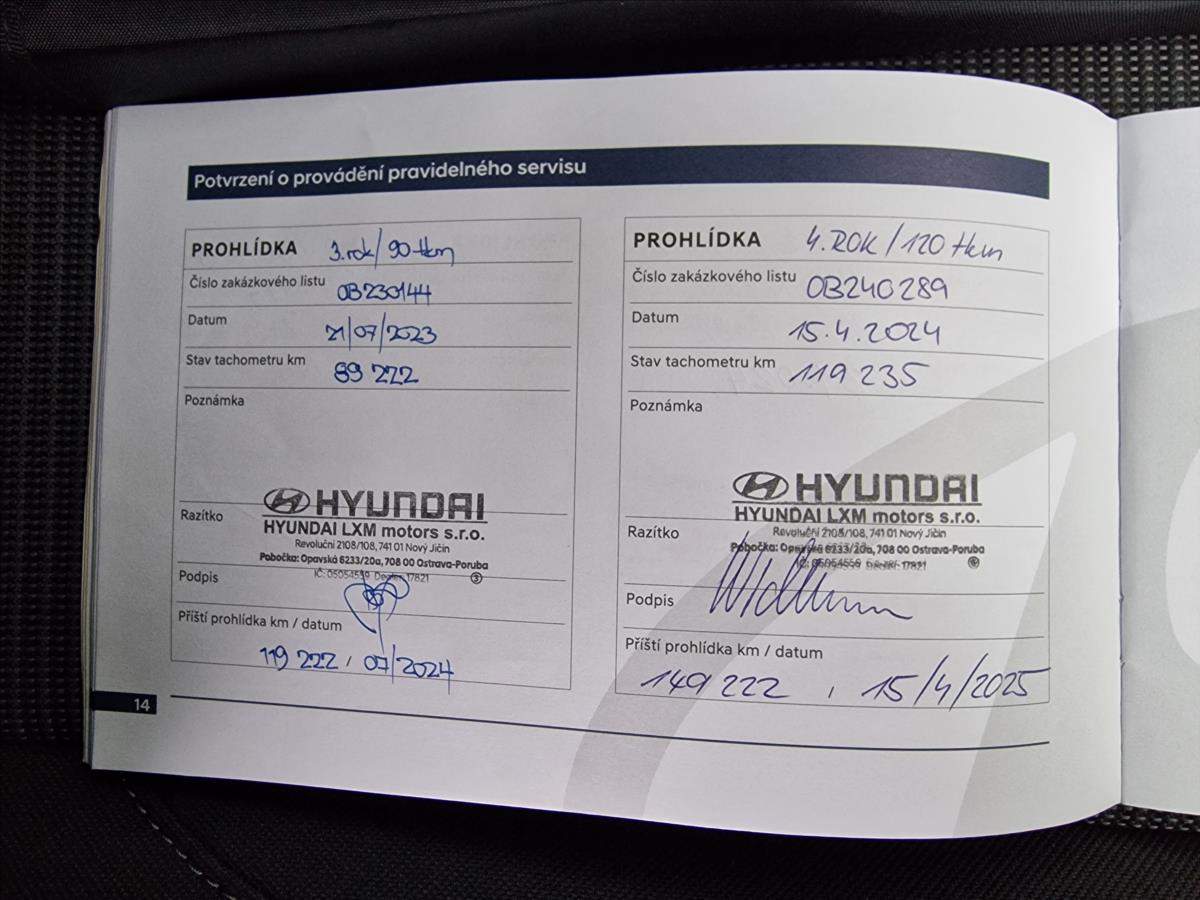 Potvrzení o provádění pravidelného servisu
PROHLÍDKA 3.rok/90 tkm
Číslo zakázkového listu 0B230144
Datum 21/07/2023
Stav tachometru km 89 222
Poznámka
HYUNDAI
HYUNDAI LXM motors s.r.o.
Revoluční 2108/108, 741 01 Nový Jičín
Razítko
Pobočka: Opavská 6233/20a, 708 00 Ostrava-Poruba
IČ: 05054559 Dealer: 17821 3
Podpis
Příští prohlídka km / datum
119 222, 07/2024
PROHLÍDKA 4. ROK / 120 tkm
Číslo zakázkového listu 0B240289
Datum 15.4.2024
Stav tachometru km 119 235
Poznámka
HYUNDAI
HYUNDAI LXM motors s.r.o.
Razítko
Revoluční 2108/108, 741 01 Nový Jičín
Pobočka: Opavská 6233/20a, 708 00 Ostrava-Poruba
IČ: 05054559
Podpis
Příští prohlídka km / datum
149 222, 15/4/2025
14